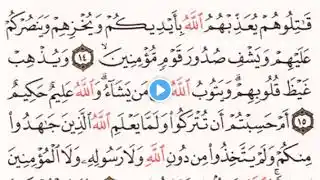 قَٰتِلُوهُمْ يُعَذِّبْهُمُ ٱللَّهُ بِأَيْدِيكُمْ وَيُخْزِهِمْ وَيَنصُرْكُمْ
عَلَيْهِمْ وَيَشْفِ صُدُورَ قَوْمٍ مُّؤْمِنِينَ ١٤ وَيُذْهِبْ
غَيْظَ قُلُوبِهِمْ وَيَتُوبُ ٱللَّهُ مَن يَشَآءُ وَٱللَّهُ عَلِيمٌ حَكِيمٌ
١٥ أَمْ حَسِبْتُمْ أَن تُتْرَكُوا۟ وَلَمَّا يَعْلَمِ ٱللَّهُ ٱلَّذِينَ جَٰهَدُوا۟
مِنكُمْ وَلَمْ يَتَّخِذُوا۟ مِن دُونِ ٱللَّهِ وَلَا رَسُولِهِۦ وَلَا ٱلْمُؤْمِنِينَ